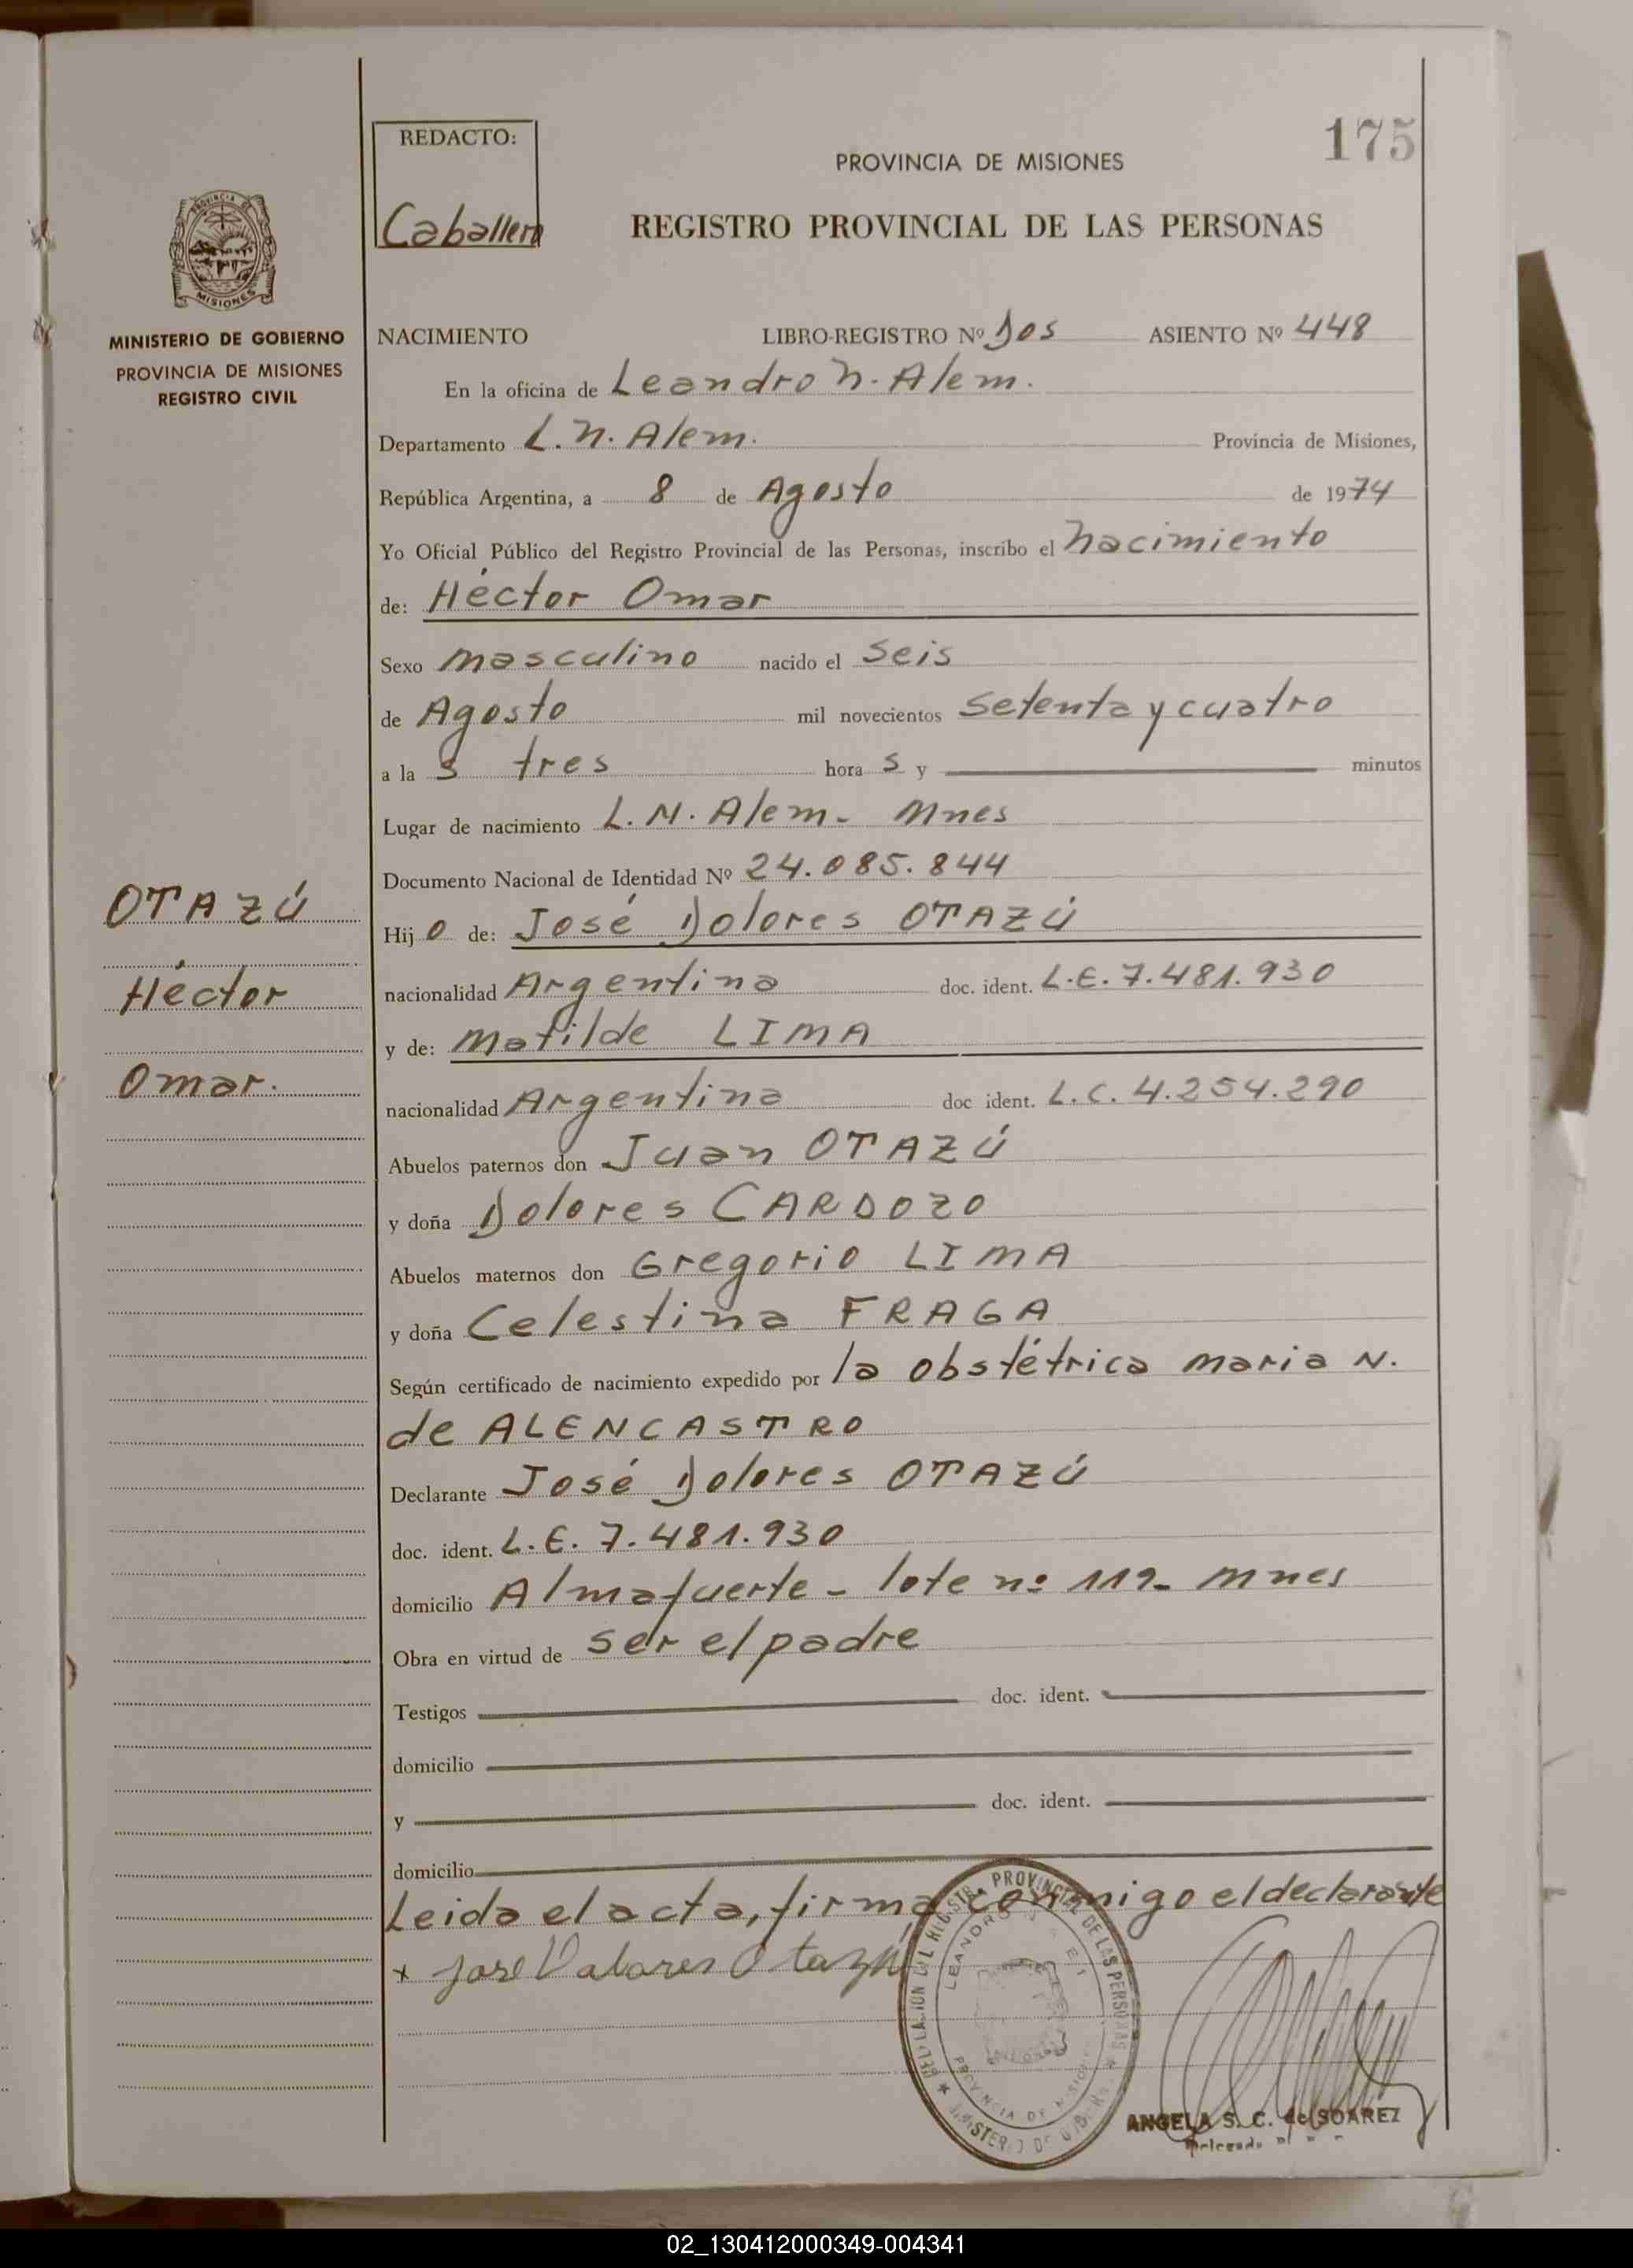 175
REDACTO:
Caballero
PROVINCIA DE MISIONES
REGISTRO PROVINCIAL DE LAS PERSONAS
MISIONES
MINISTERIO DE GOBIERNO
PROVINCIA DE MISIONES
REGISTRO CIVIL
NACIMIENTO LIBRO-REGISTRO Nº Dos ASIENTO Nº 448
En la oficina de Leandro N. Alem.
Departamento L. N. Alem. Provincia de Misiones,
República Argentina, a 8 de Agosto de 1974
Yo Oficial Público del Registro Provincial de las Personas, inscribo el nacimiento
de: Héctor Omar
Sexo masculino nacido el seis
de Agosto mil novecientos setenta y cuatro
a la s tres hora s y minutos
Lugar de nacimiento L. N. Alem - Mnes
Documento Nacional de Identidad Nº 24.085.844
OTAZÚ
Héctor
Omar.
Hij o de: José Dolores OTAZÚ
nacionalidad Argentina doc. ident. L.E. 7.481.930
y de: Matilde LIMA
nacionalidad Argentina doc ident. L.C. 4.254.290
Abuelos paternos don Juan OTAZÚ
y doña Dolores CARDOZO
Abuelos maternos don Gregorio LIMA
y doña Celestina FRAGA
Según certificado de nacimiento expedido por la obstétrica maria N.
de ALENCASTRO
Declarante José Dolores OTAZÚ
doc. ident. L.E. 7.481.930
domicilio Almafuerte - lote nº 119- Mnes
Obra en virtud de ser el padre
Testigos doc. ident.
domicilio
y doc. ident.
domicilio
Leida el acta, firma conmigo el declarante
x Jose Dalores Otazu
PROVINCIA DE MISIONES
ANGELA S. C. de SOAREZ
02_130412000349-004341